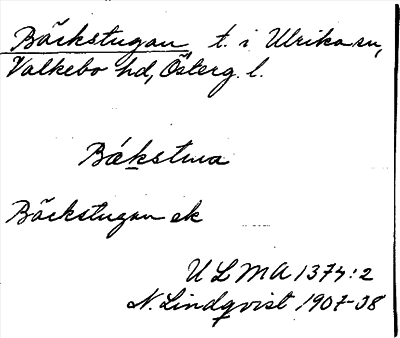 Bäckstugan, t. i Ulrika sn,
Valkebo hd, Österg. l.
Bäckstugan ek
ULMA 1374:2
N. Lindqvist 1907-08